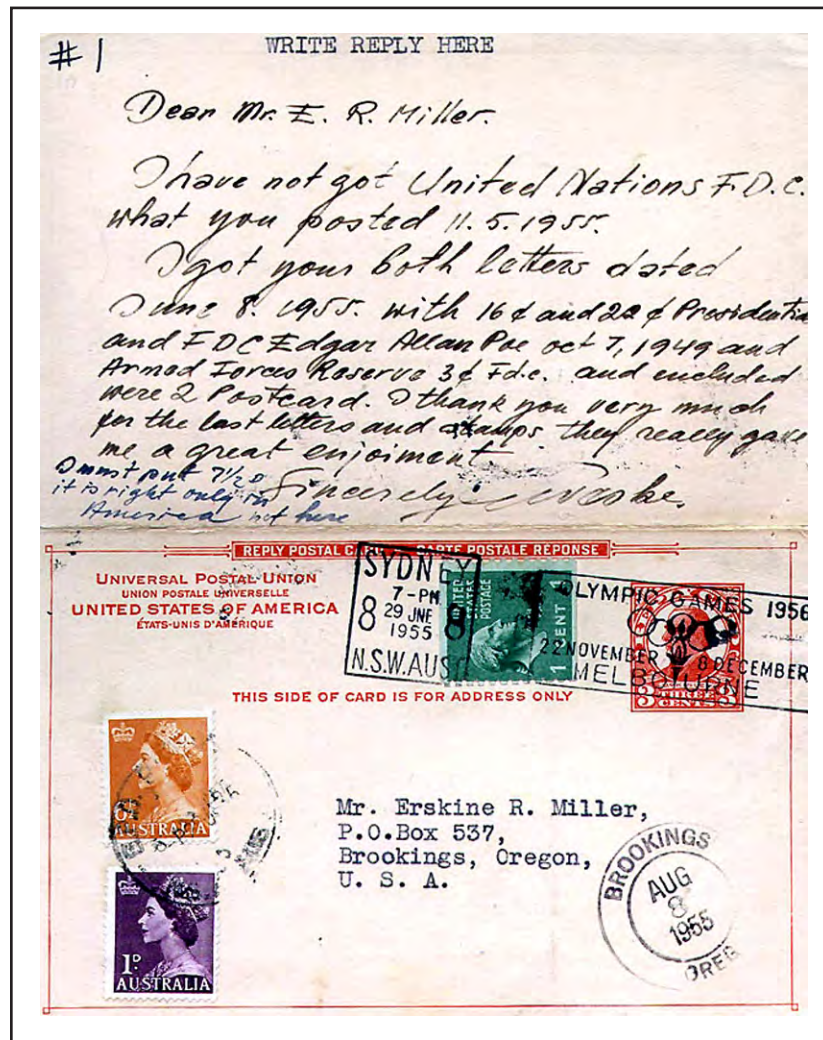 #1
WRITE REPLY HERE
Dear Mr. E. R. Miller.
I have not got United Nations F.D.C.
what you posted 11.5.1955.
I got your both letters dated
June 8. 1955. with 16¢ and 22¢ Presidentia
and FDC Edgar Allan Poe oct 7, 1949 and
Armed Forces Reserve 3¢ Fdc. and encluded
were 2 Postcard. I thank you very much
for the last letters and stamps they really gave
me a great enjoiment
Sincerely
I must put 7½D
it is right only in
America not here
REPLY POSTAL CARD CARTE POSTALE RÉPONSE
UNIVERSAL POSTAL UNION
UNION POSTALE UNIVERSELLE
UNITED STATES OF AMERICA
ÉTATS-UNIS D'AMÉRIQUE
SYDNEY
7-PM
29 JNE
1955
8 8
N.S.W. AUST
UNITED STATES POSTAGE
1 CENT 1
OLYMPIC GAMES 1956
22 NOVEMBER 8 DECEMBER
MELBOURNE
3 THREE CENTS 3
THIS SIDE OF CARD IS FOR ADDRESS ONLY
AUSTRALIA
1D.
AUSTRALIA
Mr. Erskine R. Miller,
P.O.Box 537,
Brookings, Oregon,
U. S. A.
BROOKINGS
AUG
8
1955
OREG